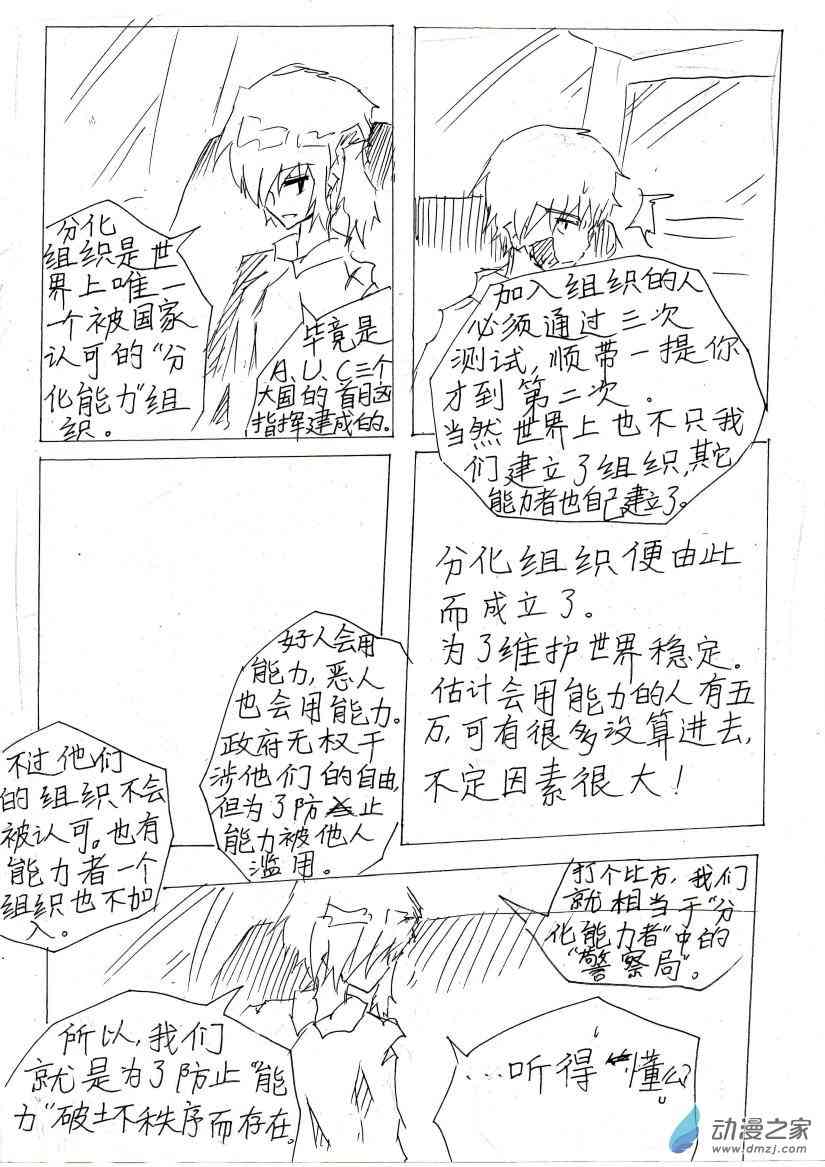 分化
组织是世
界上唯一
一个被国家
认可的“分
化能力”组
织。
毕竟是
A、U、C三个
大国的首月凶
指挥建成的。
加入组织的人
必须通过三次
测试，顺带一提你
才到第二次。
当然世界上也不只我
们建立了组织，其它
能力者也自己建立了。
好人会用
能力，恶人
也会用能力。
政府无权干
涉他们的自由，
但为了防止
能力被他人
滥用。
不过他们
的组织不会
被认可。也有
能力者一个
组织也不加
入。
分化组织便由此
而成立了。
为了维护世界稳定。
估计会用能力的人有五
万，可有很多没算进去，
不定因素很大！
打个比方，我们
就相当于“分
化能力者”中的
“警察局”。
所以，我们
就是为了防止“能
力”破坏秩序而存在。
...听得懂么。
动漫之家
www.dmzj.com